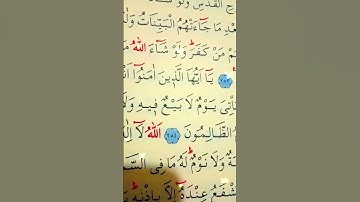 حَ الْقُدُسِ وَلَوْ شَ
عْدِ مَا جَٓاءَتْهُمُ الْبَيِّنَاتُ وَلٰ
هُمْ مَنْ كَفَرَۜ وَلَوْ شَٓاءَ اللّٰهُ مَ
﴿٢٥٣﴾ يَٓا اَيُّهَا الَّذٖينَ اٰمَنُٓوا اَنْ
يَأْتِىَ يَوْمٌ لَا بَيْعٌ فٖيهِ وَلَا
الظَّالِمُونَ ﴿٢٥٤﴾ اَللّٰهُ لَٓا اِلٰ
ةٌ وَلَا نَوْمٌۜ لَهُ مَا فِى السَّ
شْفَعُ عِنْدَهُٓ اِلَّا بِاِذْنِهٖۜ يَ